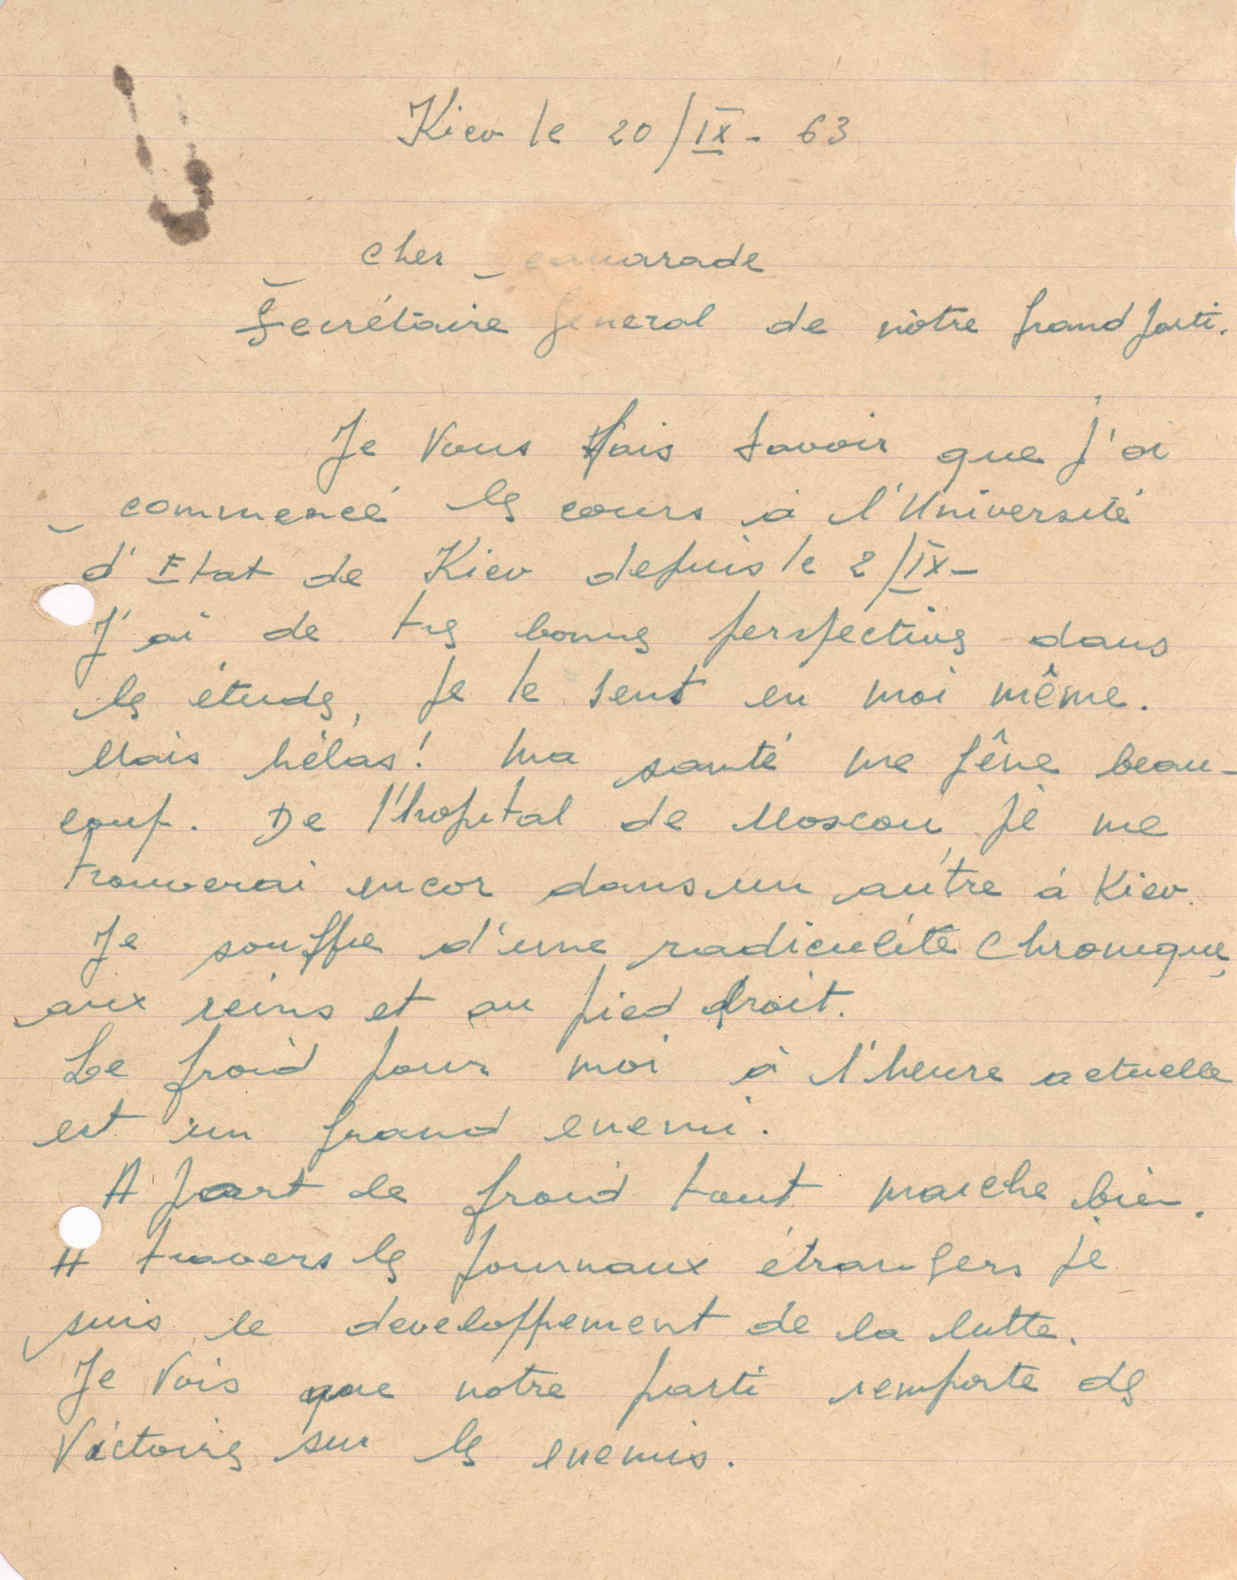 Kiev le 20/IX - 63
cher camarade
Secrétaire General de nôtre grand parti.
Je Vous fais savoir que j'ai
commencé les cours à l'Université
d'Etat de Kiev depuis le 2/IX-
J'ai de tres bonnes perspectives dans
les études, je le sent en moi même.
Mais hélas! ma santé me gêne beau-
coup. De l'hopital de Moscou, je me
trouverai encor dans un autre à Kiev.
Je souffre d'une radiculite chronique,
aux reins et au pied droit.
Le froid pour moi à l'heure actuelle
est un grand enemi.
A part le froid tout marche bien.
A travers les journaux étrangers je
suis le developpement de la lutte.
Je Vois que notre parti remporte des
Victoires sur les enemis.